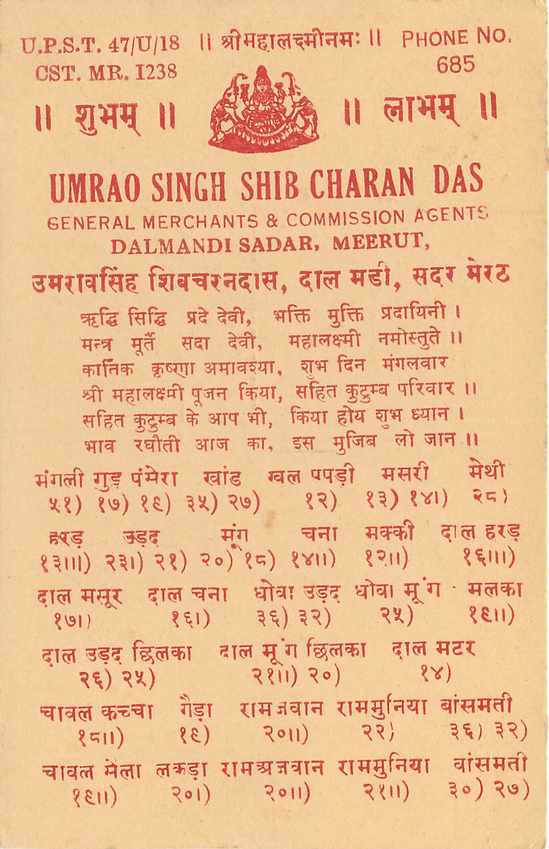 U.P.S.T. 47/U/18 ॥ श्रीमहालक्ष्मीनमः ॥ PHONE NO.
CST. MR. 1238 685
॥ शुभम् ॥ ॥ लाभम् ॥
UMRAO SINGH SHIB CHARAN DAS
GENERAL MERCHANTS & COMMISSION AGENTS
DALMANDI SADAR, MEERUT,
उमरावसिंह शिबचरनदास, दाल मडी, सदर मेरठ
ऋद्धि सिद्धि प्रदे देवी, भक्ति मुक्ति प्रदायिनी ।
मन्त्र मूर्ते सदा देवी, महालक्ष्मी नमोस्तुते ॥
कार्तिक कृष्णा अमावश्या, शुभ दिन मंगलवार
श्री महालक्ष्मी पूजन किया, सहित कुटुम्ब परिवार ॥
सहित कुटुम्ब के आप भी, किया होय शुभ ध्यान ।
भाव रघौती आज का, इस मुजिब लो जान ॥
मंगली गुड़ पंमेरा खांड खल पपड़ी मसरी मेथी
५१) १७) १६) ३५) २७) १२) १३) १४।) २८)
हरड़ उड़द मूंग चना मक्की दाल हरड़
१३॥) २३।) २१) २०) १८) १४॥) १२॥) १६॥।)
दाल मसूर दाल चना धोवा उड़द धोवा मूंग मलका
१७।) १६।) ३६) ३२) २५) १९॥)
दाल उड़द छिलका दाल मूंग छिलका दाल मटर
२६) २५) २१॥) २०) १४)
चावल कच्चा गैड़ा रामजवान राममुनिया बांसमती
१८॥) १९) २०॥) २२) ३६) ३२)
चावल मेला लकड़ा रामअजवान राममुनिया वांसमती
१९॥) २०।) २०॥) २१॥) ३०) २७)